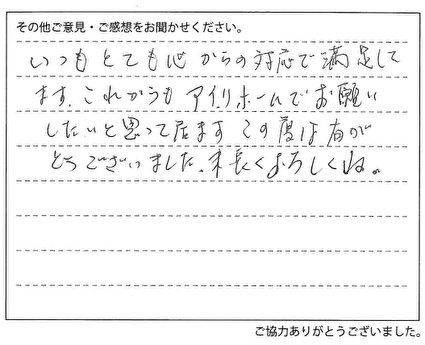 その他ご意見・ご感想をお聞かせください。
いつもとても心からの対応で満足して
ます。これからもアイリホームでお願い
したいと思って居ます この度は有が
とうございました。末長くよろしくね。
ご協力ありがとうございました。